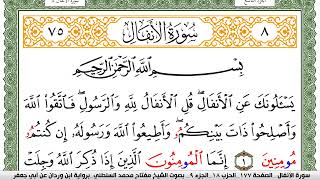 ٧٥ سُورَةُ الْأَنْفَالِ ٨
بِسْمِ اللَّهِ الرَّحْمَٰنِ الرَّحِيمِ
يَسْـَٔلُونَكَ عَنِ الْأَنْفَالِ قُلِ الْأَنْفَالُ لِلَّهِ وَالرَّسُولِ فَاتَّقُوا اللَّهَ
وَأَصْلِحُوا ذَاتَ بَيْنِكُمْ وَأَطِيعُوا اللَّهَ وَرَسُولَهُ إِنْ كُنْتُمُ
مُومِنِينَ ١ إِنَّمَا الْمُومِنُونَ الَّذِينَ إِذَا ذُكِرَ اللَّهُ وَجِلَتْ
سورة الأنفال. الصفحة ١٧٧ الحزب ١٨. الجزء ٩. بصوت الشيخ مفتاح محمد السلطني. برواية ابن وردان عن أبي جعفر